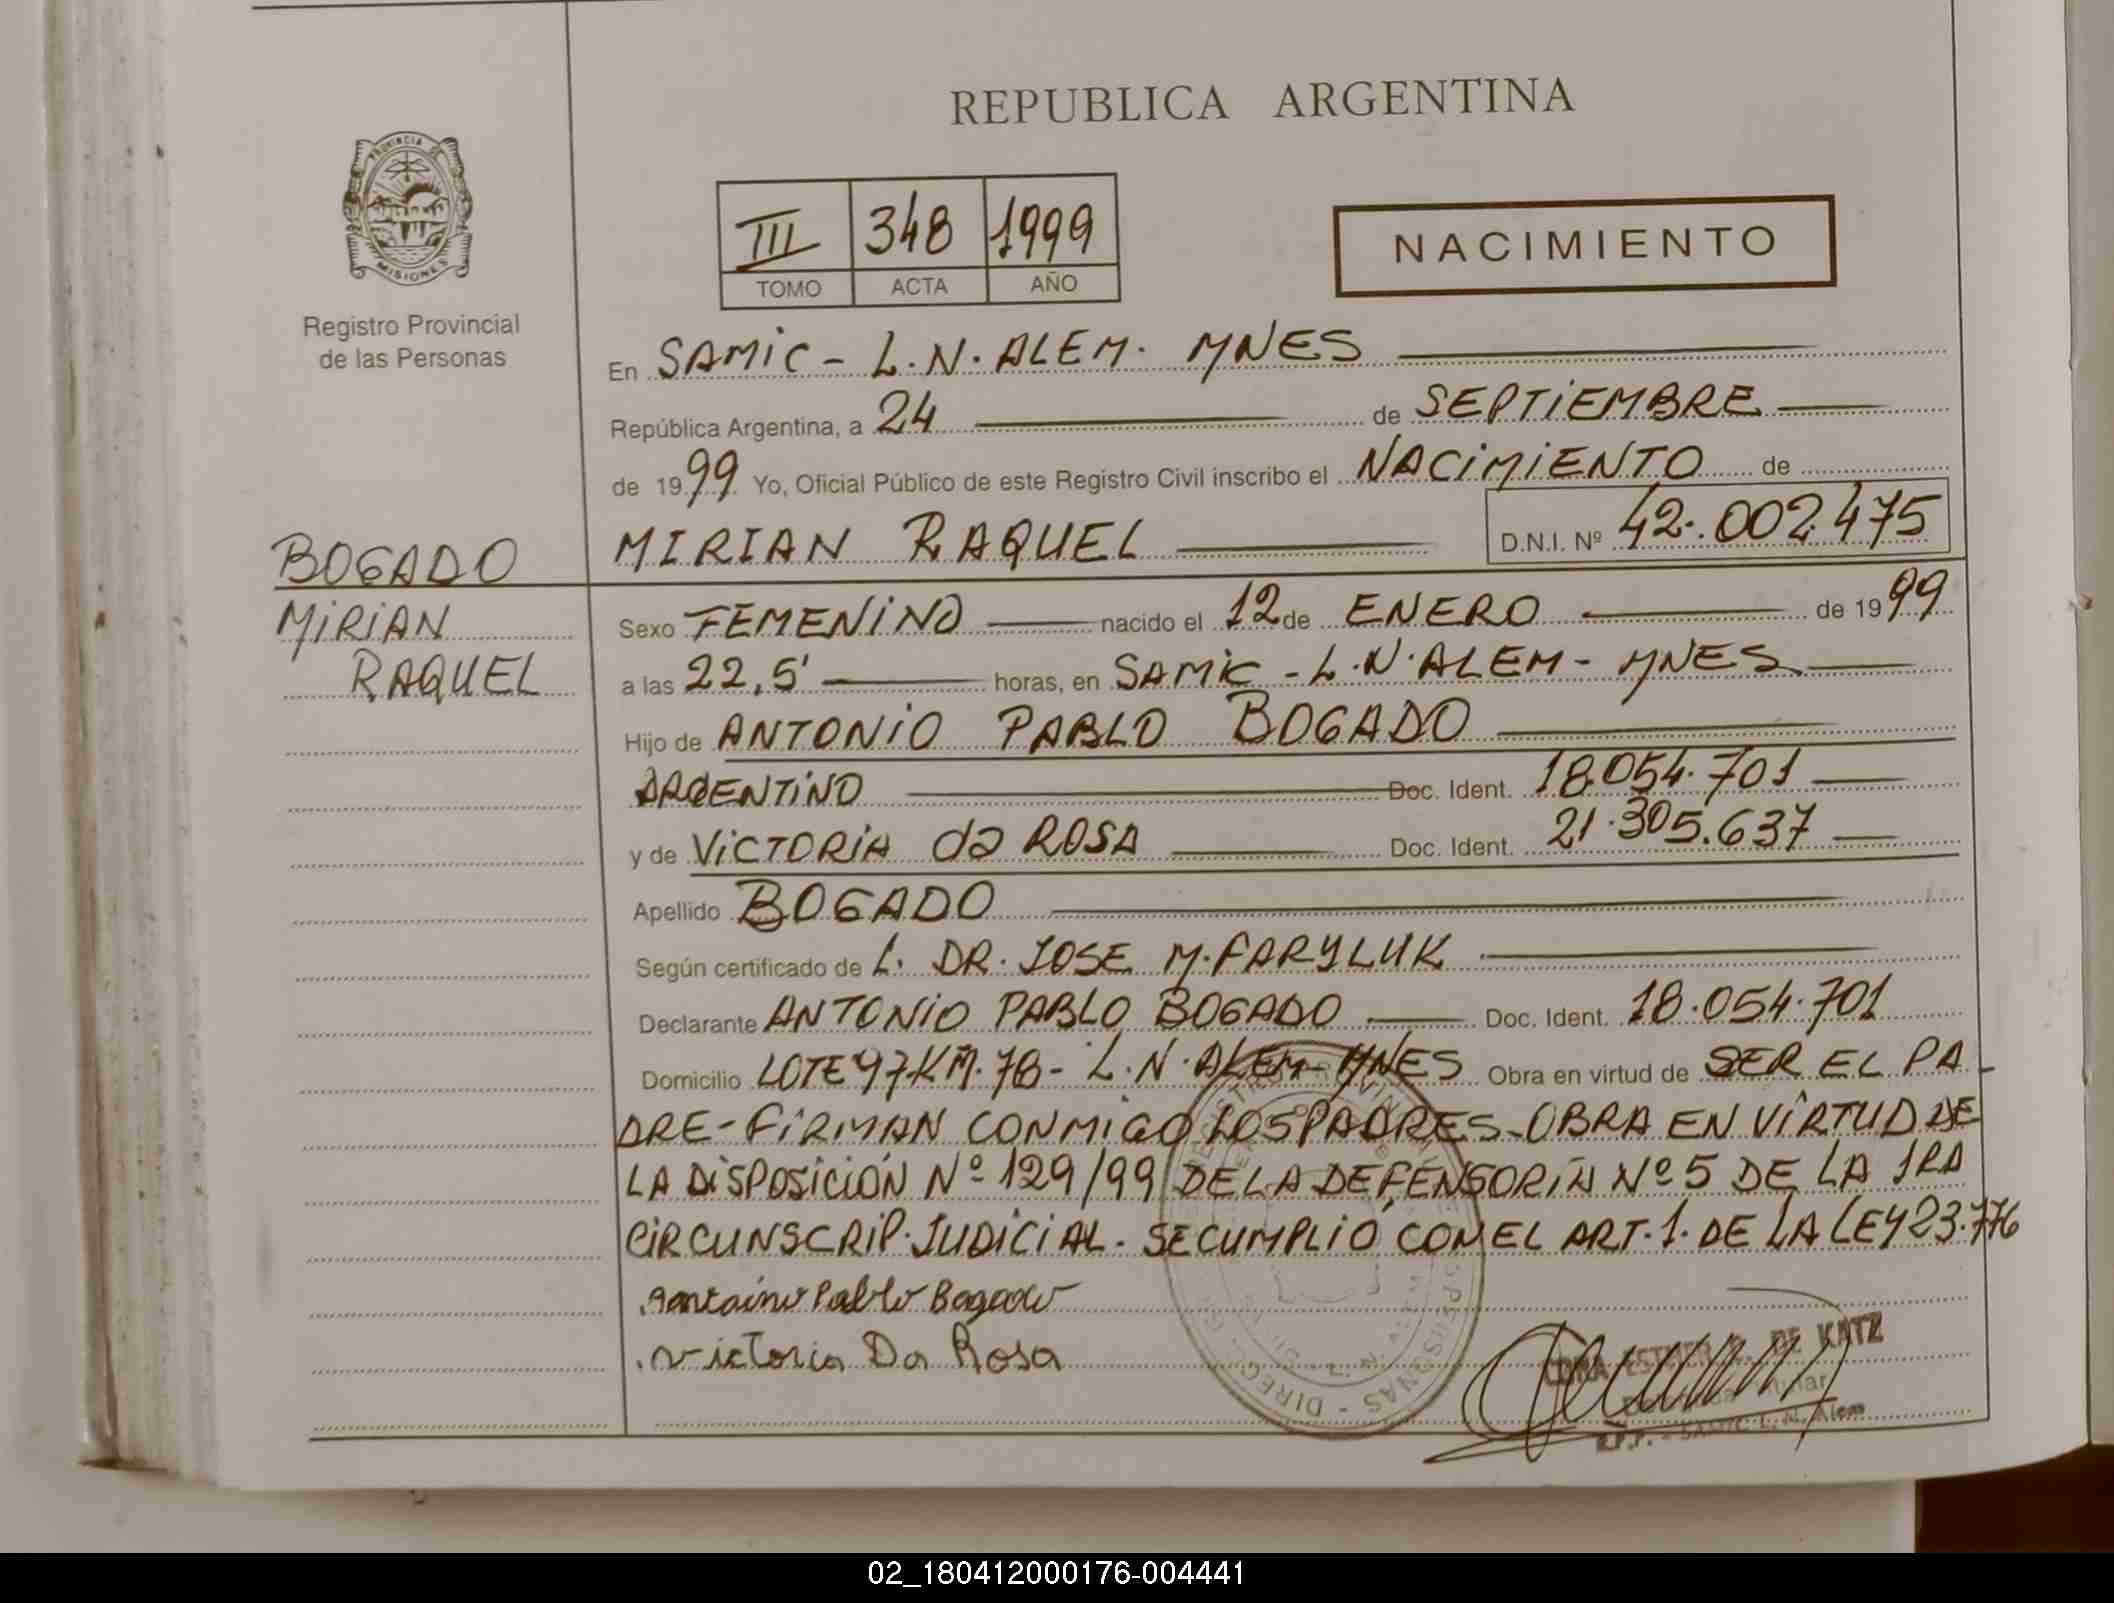 REPUBLICA ARGENTINA
PROVINCIA DE MISIONES
Registro Provincial
de las Personas
III 348 1999
TOMO ACTA AÑO
NACIMIENTO
En SAMIC - L.N. ALEM. MNES
República Argentina, a 24 de SEPTIEMBRE
de 1999 Yo, Oficial Público de este Registro Civil inscribo el NACIMIENTO de
MIRIAN RAQUEL D.N.I. Nº 42.002.475
BOGADO
MIRIAN
RAQUEL
Sexo FEMENINO nacido el 12 de ENERO de 1999
a las 22,5' horas, en SAMIC - L.N. ALEM - MNES
Hijo de ANTONIO PABLO BOGADO
ARGENTINO Doc. Ident. 18.054.701
y de VICTORIA da ROSA Doc. Ident. 21.305.637
Apellido BOGADO
Según certificado de L. DR. JOSE M. FARYLUK
Declarante ANTONIO PABLO BOGADO Doc. Ident. 18.054.701
Domicilio LOTE 97 KM. 78 - L.N. ALEM - MNES Obra en virtud de SER EL PA-
DRE - FIRMAN CONMIGO LOS PADRES - OBRA EN VIRTUD DE
LA DISPOSICIÓN Nº 129/99 DE LA DEFENSORÍA Nº 5 DE LA 1RA
CIRCUNSCRIP. JUDICIAL. SE CUMPLIÓ CON EL ART. 1. DE LA LEY 23.776
Antoino Pablo Bogado
Victoria Da Rosa
DE KATZ
R.P.P. - SAMIC L. N. Alem
02_180412000176-004441